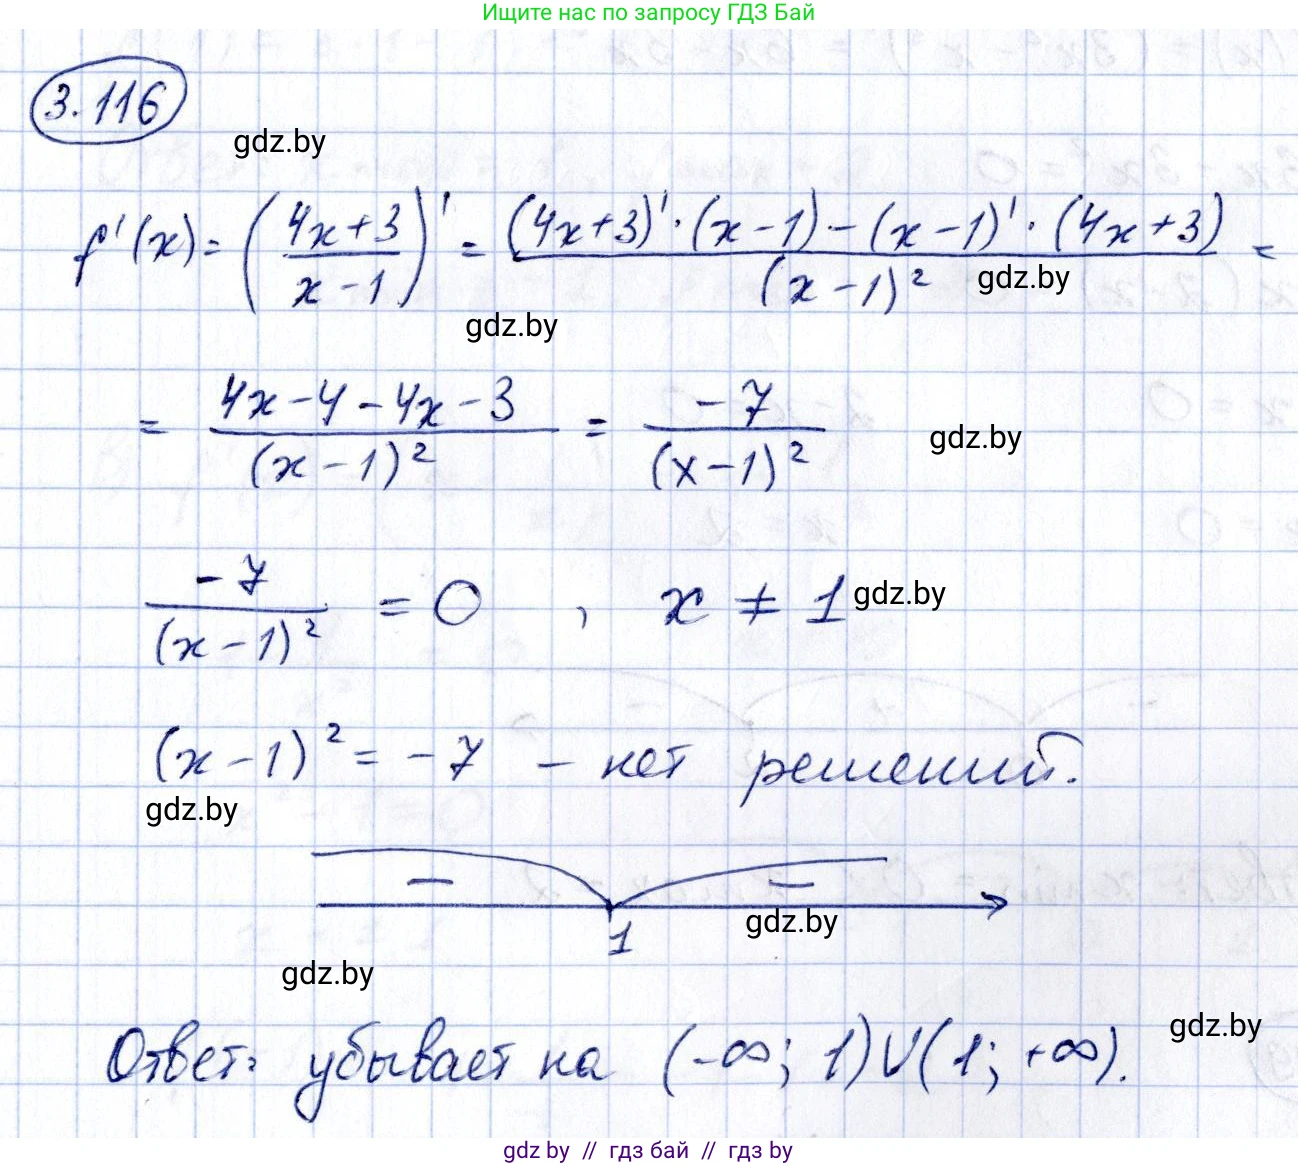 Ищите нас по запросу ГДЗ Бай
3.116
gdz.by
f'(x) = ((4x+3)/(x-1))' = ((4x+3)'·(x-1) - (x-1)'·(4x+3))/(x-1)² =
gdz.by
gdz.by
= (4x-4-4x-3)/(x-1)² = -7/(x-1)²
gdz.by
-7/(x-1)² = 0 , x ≠ 1
gdz.by
(x-1)² = -7 - нет решений.
gdz.by
- -
1
gdz.by
gdz.by
Ответ: убывает на (-∞; 1)∪(1; +∞).
gdz.by
gdz by // гдз бай // гдз by